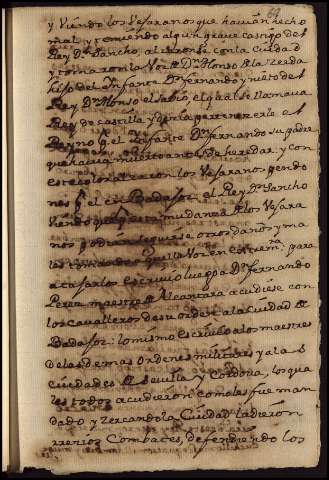 69
y Viendo los Vejaranos que havian hecho
mal y temiendo algun grave castigo del
Rey Dn Sancho, alzaronse con la Ciudad
y tomaron la Voz de Dn Alonso de la Zerda
hijo del Infante Dn fernando y nieto del
Rey Dn Alonso el Savio el qual se llamava
Rey de castilla y decia pertenecerle el
Reyno el Infante Dn fernando su padre
que havia muerto antes de heredar, y con
este color alzaron los Vejaranos pendo
nes en Badajoz: el Rey Dn Sancho
Viendo que esta mudanza de los Vejara
nos podria seguirse otros daños y ma
les tomandose aquella Voz en estrem.ra para
atajarlos escrivio luego a Dn fernando
Perez maestre de Alcantara acudiese con
los cavalleros de su orden a la ciudad de
Badajoz: lo mismo escrivio a los maestres
de las demas ordenes militares y a las
ciudades de Sevilla y Cordova, los qua
les todos acudieron como les fue man
dado y zercando la Ciudad la dieron
rrecios Combates, defendiendo los